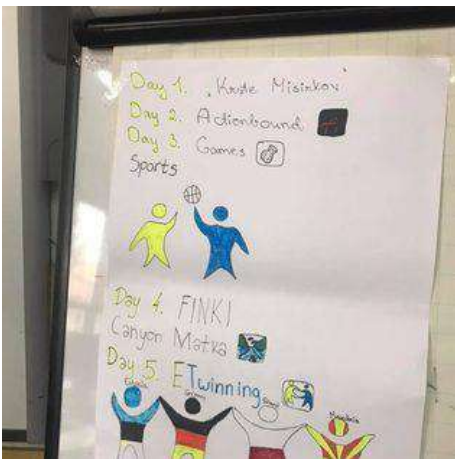 Day 1. "Krste Misirkov"
Day 2. Actionbound
Day 3. Games
Sports
Day 4. FINKI
Canyon Matka
Day 5. ETwinning
Estonia
Germany
Macedonia